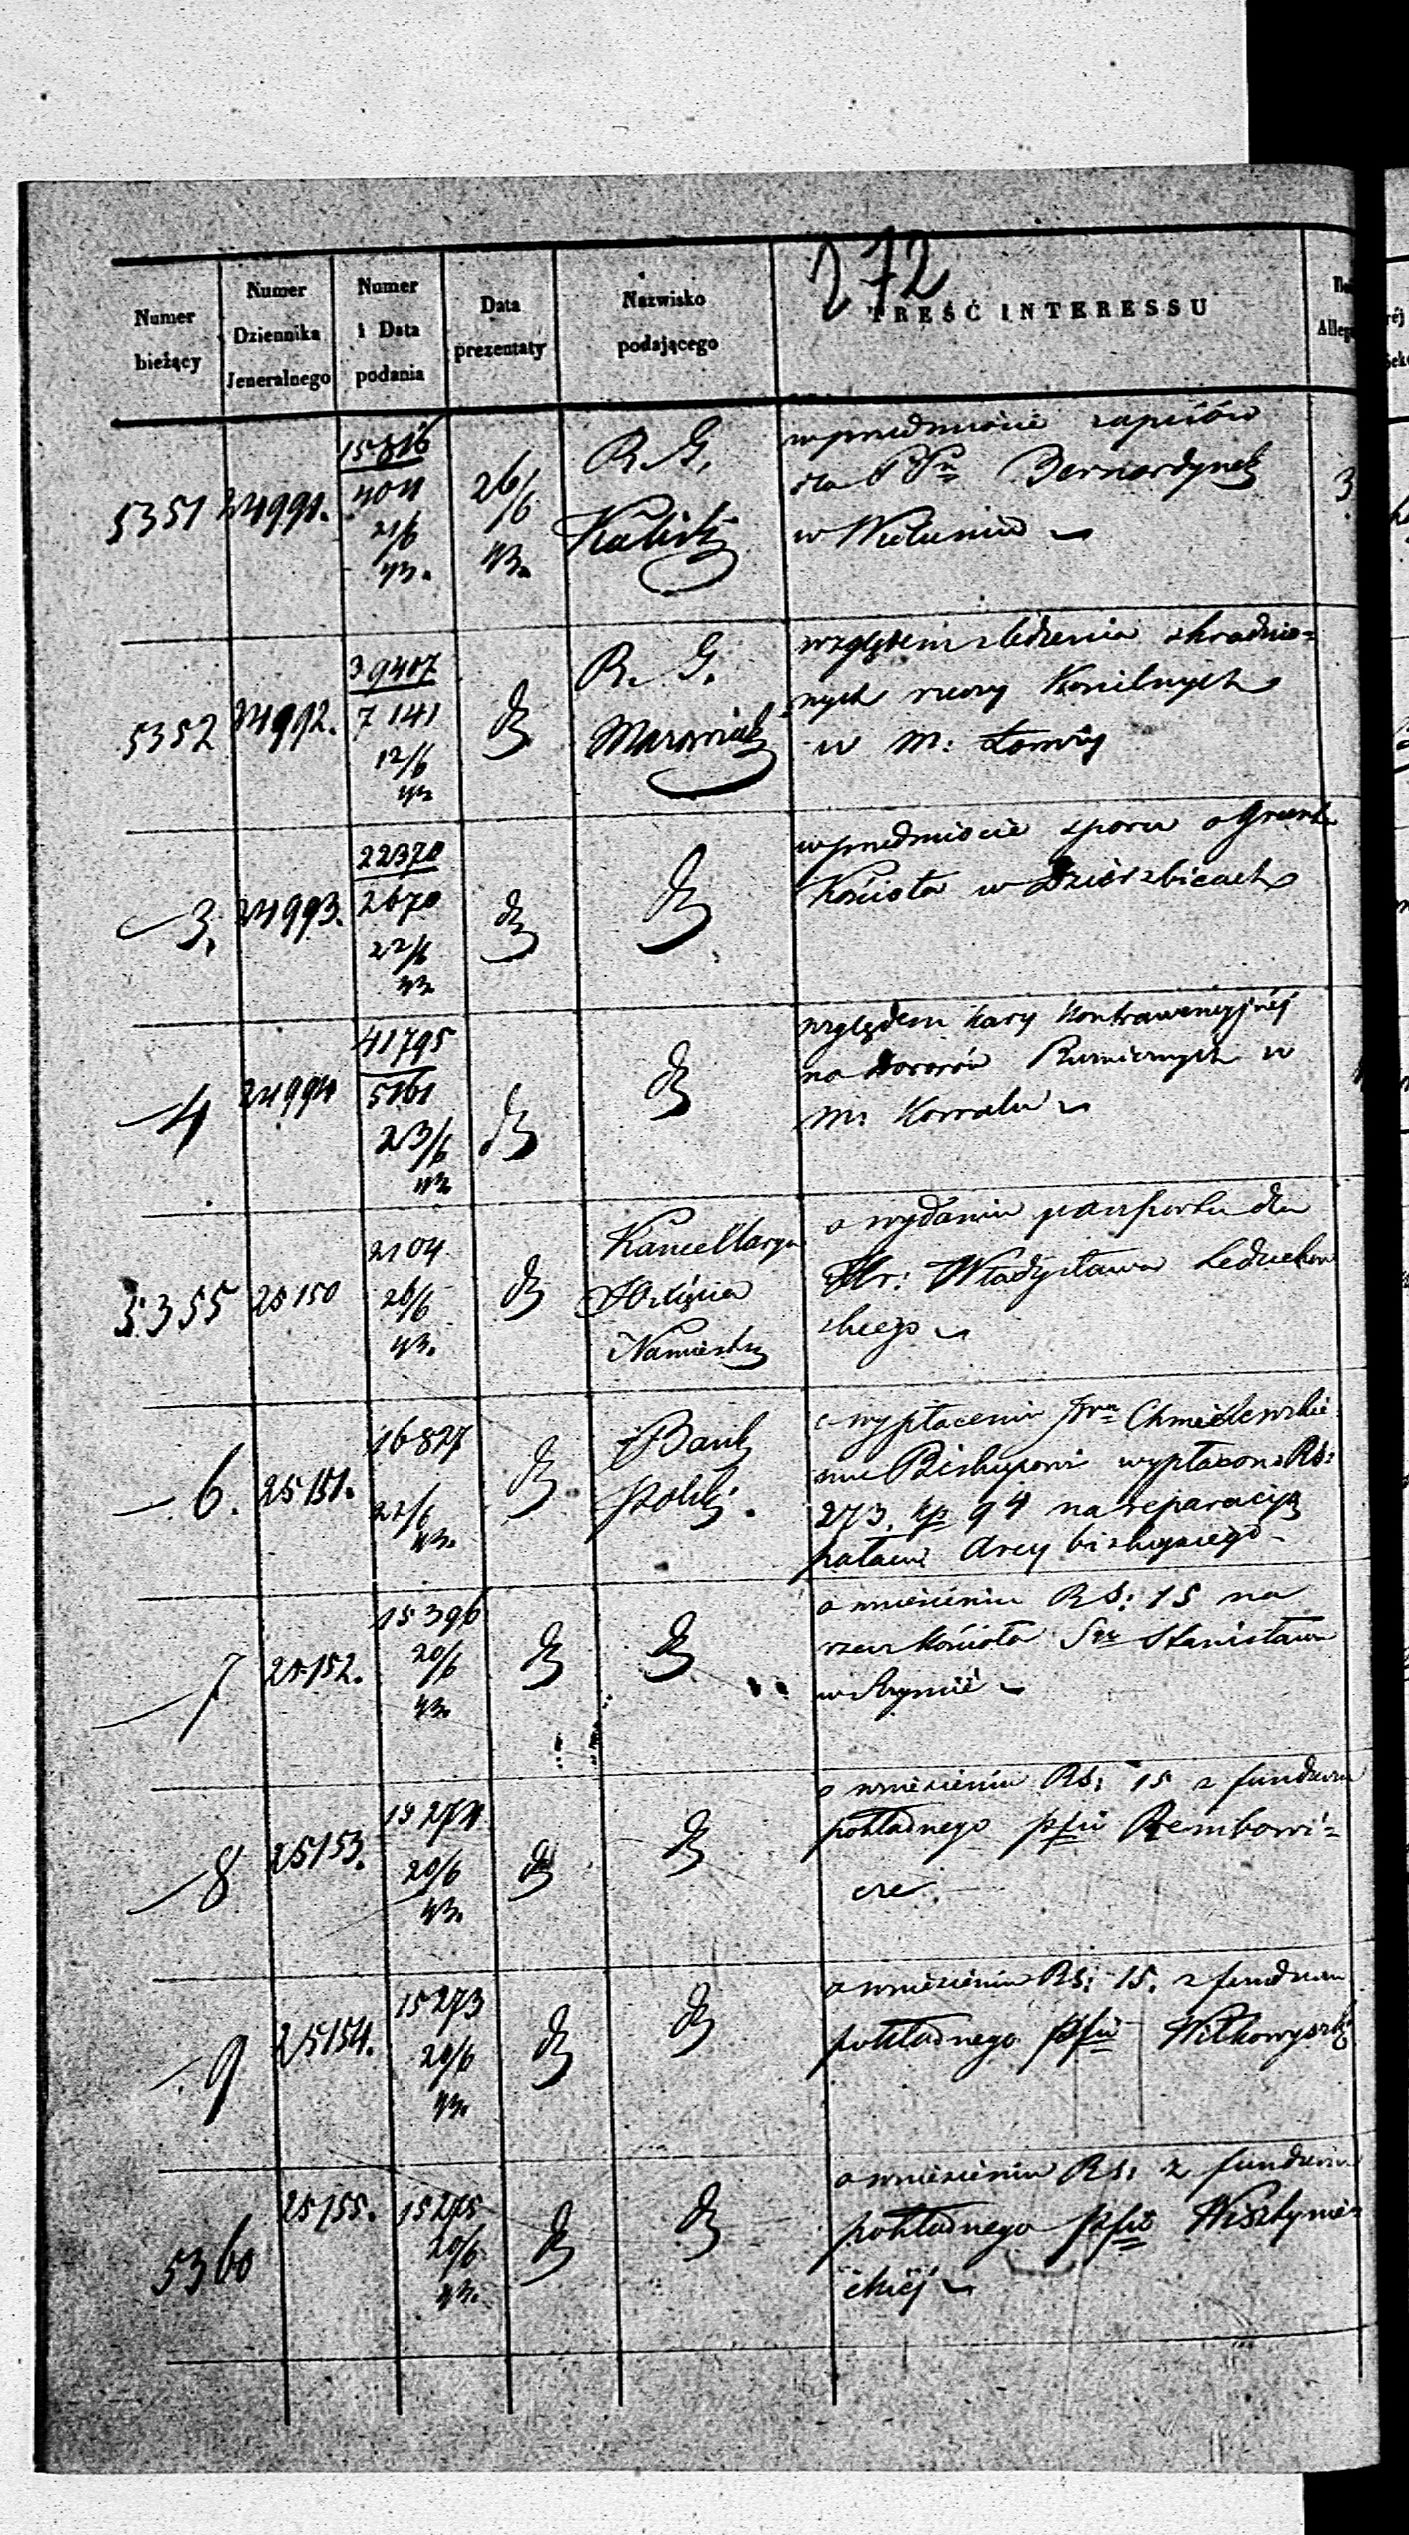 272
Numer bieżący
Numer Dziennika Jeneralnego
Numer i Data podania
Data prezentaty
Nazwisko podającego
TREŚĆ INTERESSU
5351 24991. 15816 404 21/6 43. 26/6 43. R. G. Kalisk
w przedmiocie zapisów
dla PPn Bernardynek
w Wieluniu
3
5352 24992. 39407 7141 12/6 43 d R. G. Mazowiec
względem śledzenia skradzio=
nych rzeczy Kościelnych
w M:
3. 24993. 22370 2670 22/6 43 d d
w przedmiocie sporu o grunt
Kościoła w Dzierzbicach
4 24994 41795 5161 23/6 43 d d
względem kary kontrawencyjnéj
na dozorów w
M: Kowalu
5355 25150 2104 26/6 43. d Kancellarya Xięcia Namiestn
o wydaniu paszportu dla
Hr: Władysława Leduchow
skiego
6. 25151. 16827 22/6 43. d Bank Polski.
o wypłaceniu Chmielewskie
mu Biskupowi wypłacono Rs:
273. kp 94 na reparacyą
pałacu Arcybiskupiego
7 25152. 15396 20/6 43. d d
o wniesieniu Rs: 15 na
rzecz kościoła Sgo Stanisława
w Rzymie
8 25153. 15274 20/6 43. d d
o wniesieniu Rs: 15 z funduszu
pokładnego pfii Rembowi=
cze.
9 25154. 15273 20/6 43. d d
o wniesieniu Rs: 15. z funduszu
pokładnego pfii Wiłkowyszki
5360 25155. 15275 20/6 43. d d
o wniesieniu Rs: z funduszu
pokładnego pfii Wisztynie=
ckiéj